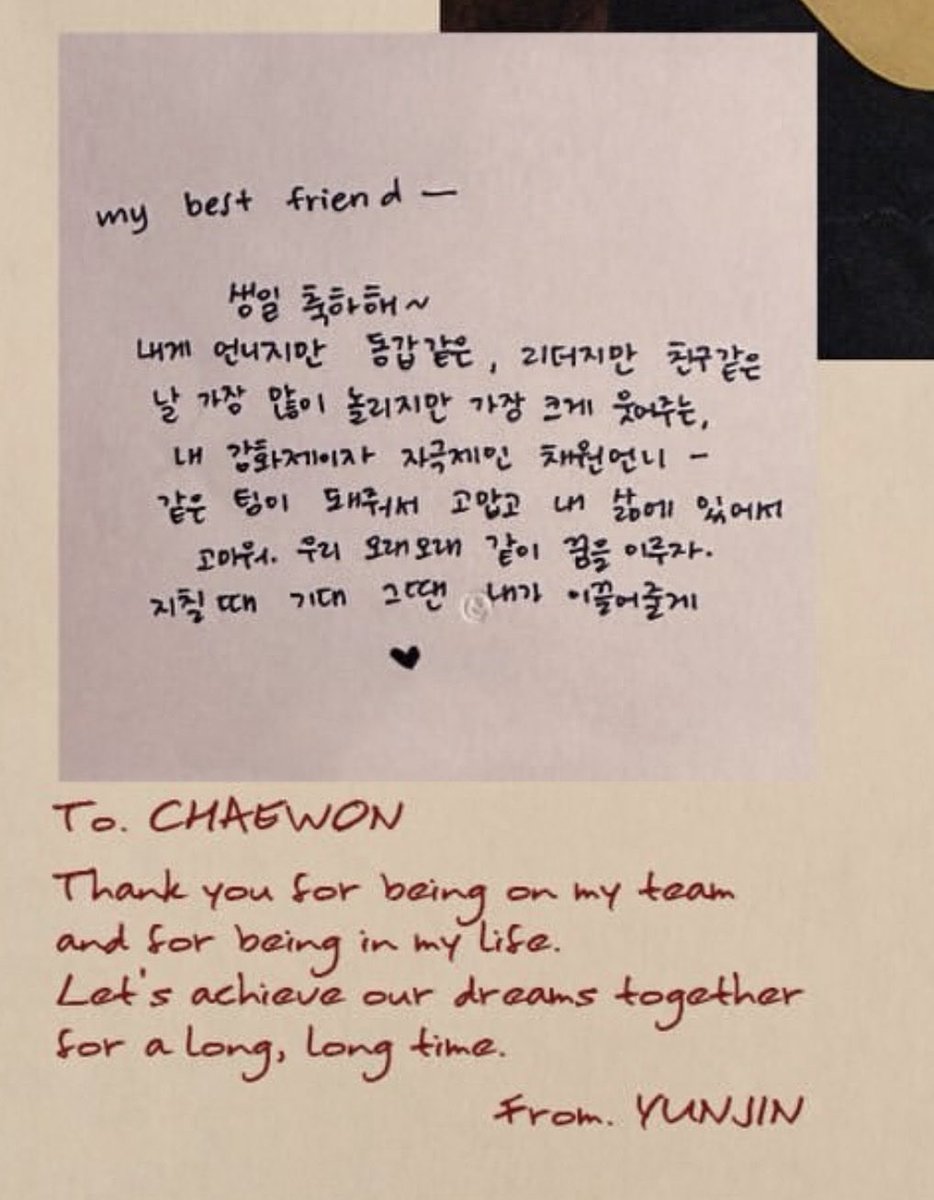 my best friend —
생일 축하해~
내게 언니지만 동갑같은, 리더지만 친구같은
날 가장 많이 놀리지만 가장 크게 웃어주는,
내 강화제이자 자극제인 채원언니 –
같은 팀이 돼줘서 고맙고 내 삶에 있어서
고마워. 우리 오래오래 같이 꿈을 이루자.
지칠 때 기대 그땐 내가 이끌어줄게
♥
To. CHAEWON
Thank you for being on my team
and for being in my life.
Let's achieve our dreams together
for a long, long time.
From. YUNJIN